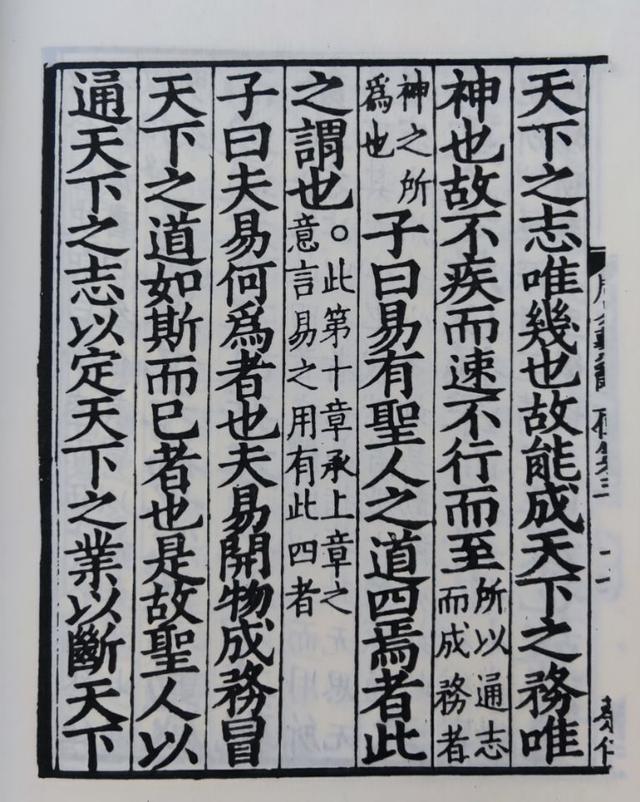 天下之志唯幾也故能成天下之務唯
神也故不疾而速不行而至所以通志而成務者
神之所為也子曰易有聖人之道四焉者此
之謂也。此第十章承上章之意言易之用有此四者
子曰夫易何為者也夫易開物成務冒
天下之道如斯而已者也是故聖人以
通天下之志以定天下之業以斷天下